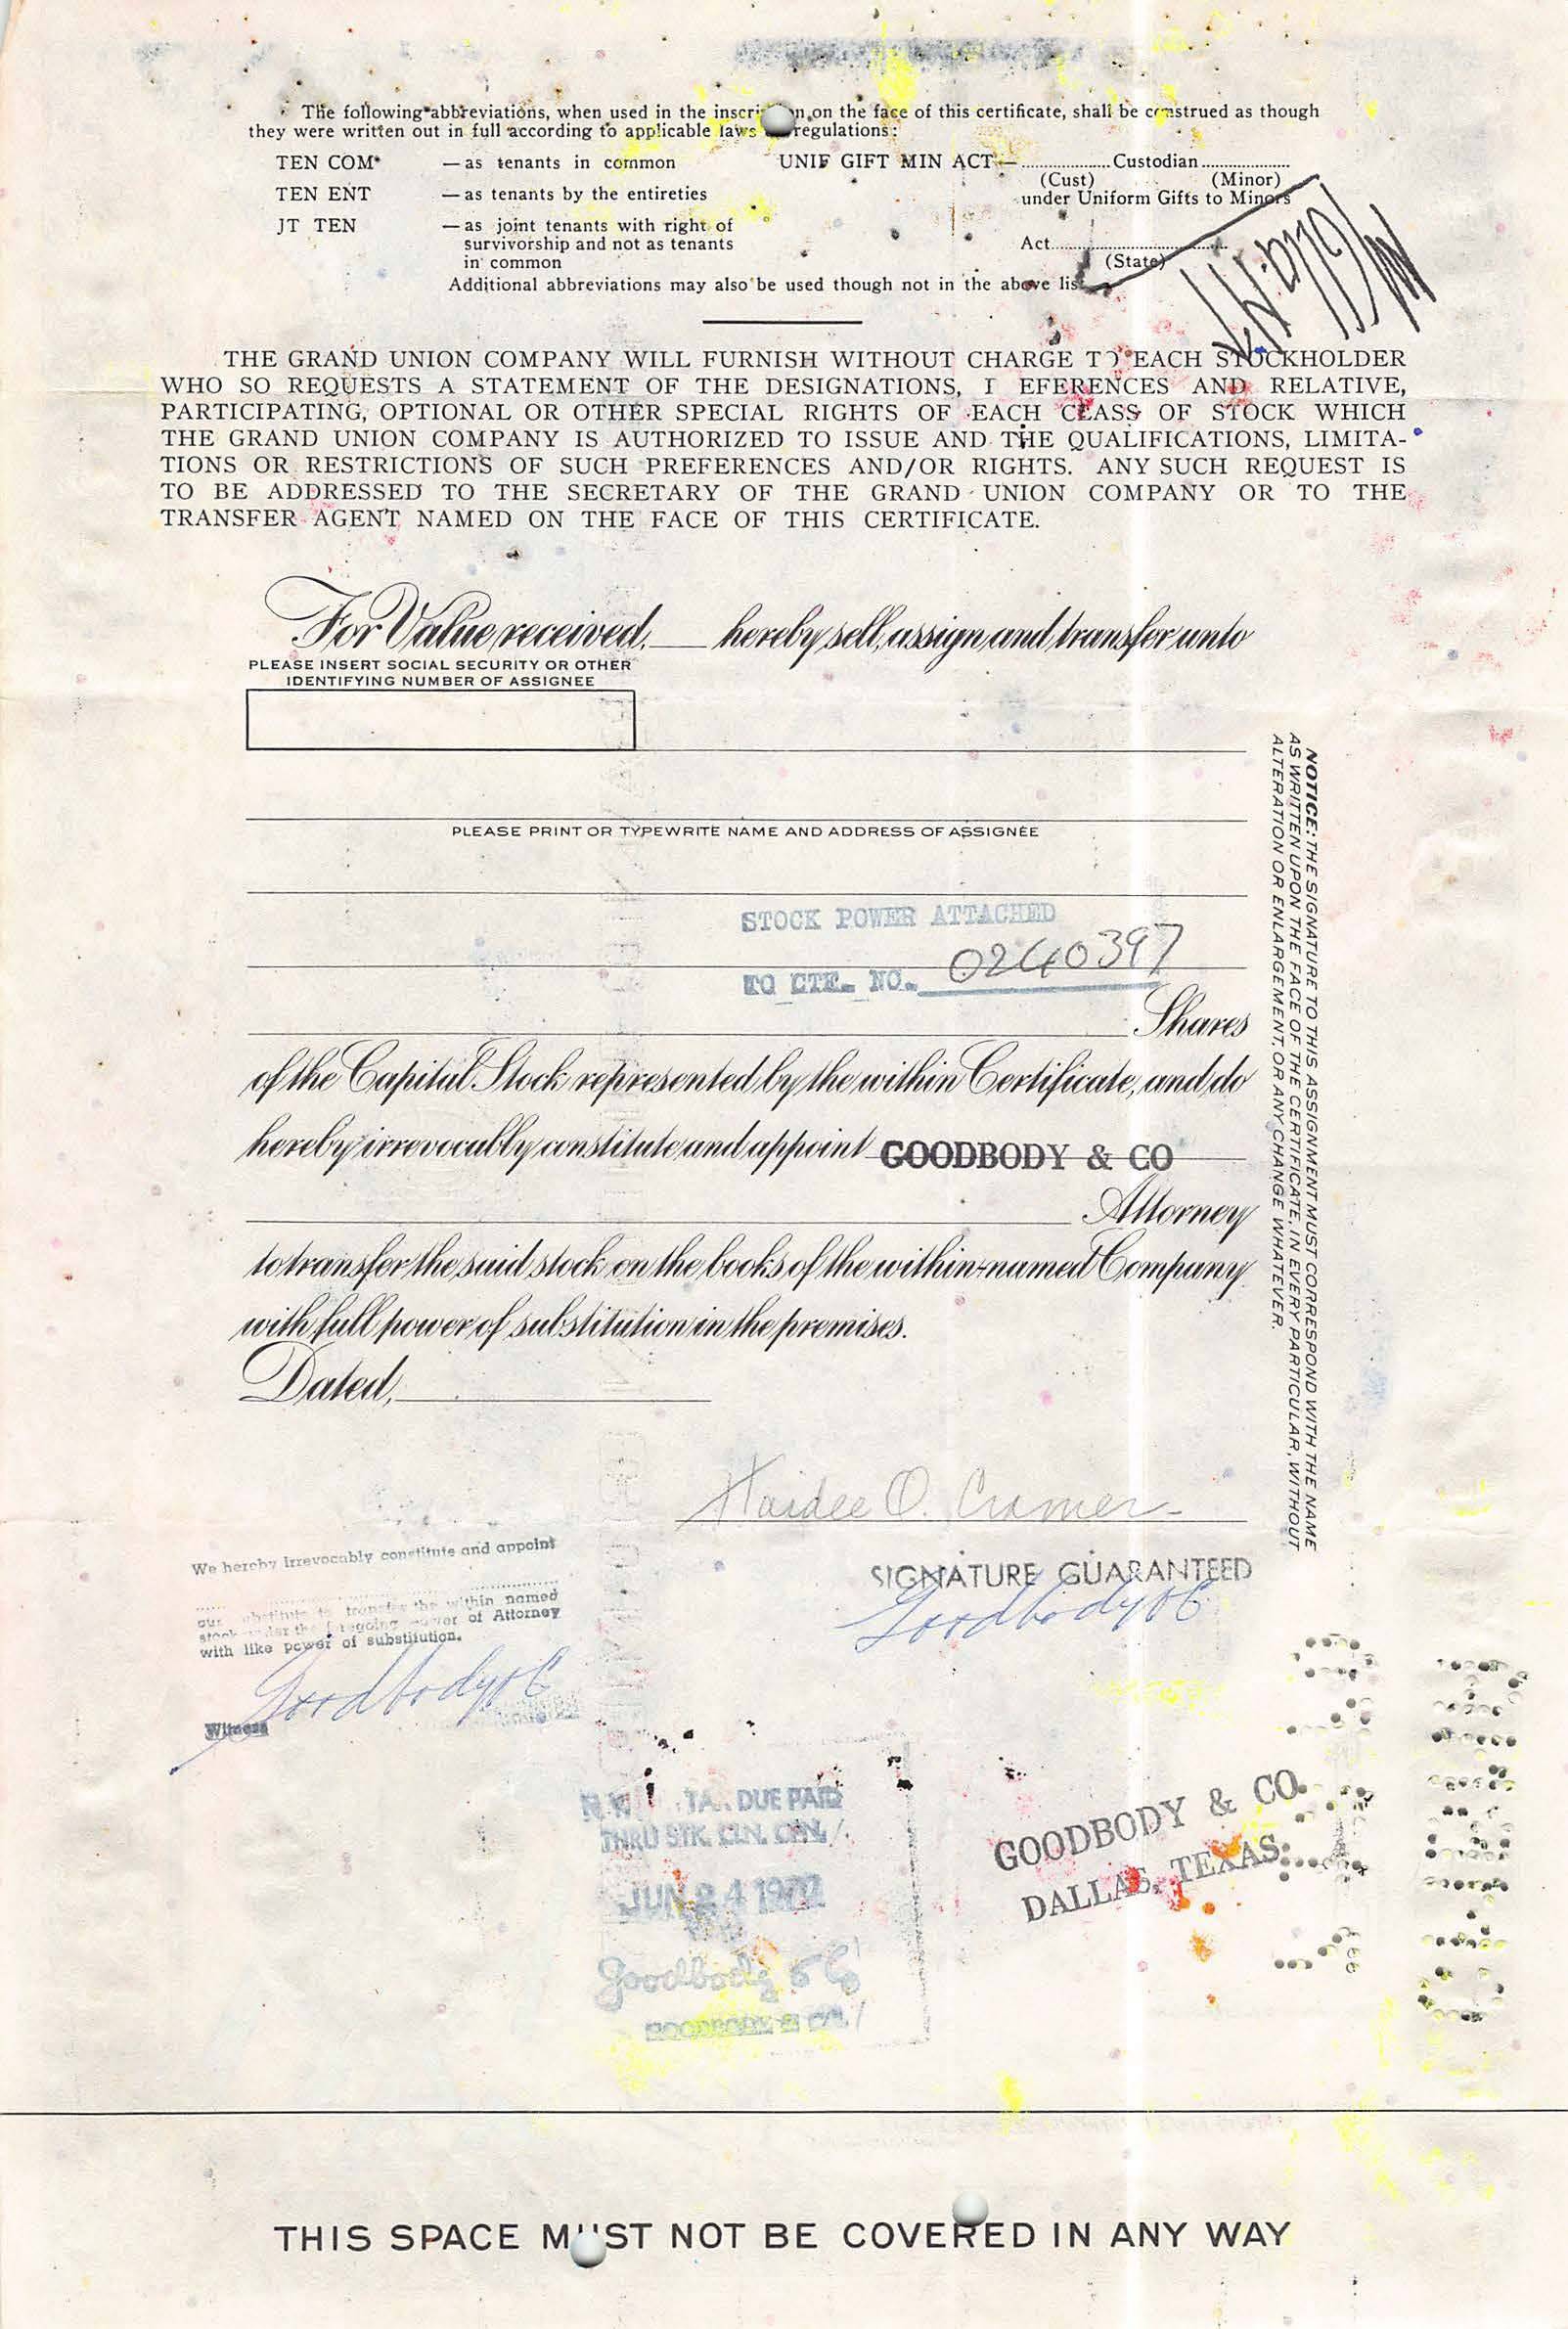 The following abbreviations, when used in the on the face of this certificate, shall be construed as though
they were written out in full according to applicable laws regulations:
TEN COM — as tenants in common
TEN ENT — as tenants by the entireties
JT TEN — as joint tenants with right of
survivorship and not as tenants
in common
UNIF GIFT MIN ACT— .................... Custodian ....................
(Cust) (Minor)
under Uniform Gifts to Minors
Act........................................
(State)
Additional abbreviations may also be used though not in the above
THE GRAND UNION COMPANY WILL FURNISH WITHOUT CHARGE TO EACH STOCKHOLDER
WHO SO REQUESTS A STATEMENT OF THE DESIGNATIONS, EFERENCES AND RELATIVE,
PARTICIPATING, OPTIONAL OR OTHER SPECIAL RIGHTS OF EACH CLASS OF STOCK WHICH
THE GRAND UNION COMPANY IS AUTHORIZED TO ISSUE AND THE QUALIFICATIONS, LIMITA-
TIONS OR RESTRICTIONS OF SUCH PREFERENCES AND/OR RIGHTS. ANY SUCH REQUEST IS
TO BE ADDRESSED TO THE SECRETARY OF THE GRAND UNION COMPANY OR TO THE
TRANSFER AGENT NAMED ON THE FACE OF THIS CERTIFICATE.
For Value received, ____ hereby sell, assign and transfer unto
PLEASE INSERT SOCIAL SECURITY OR OTHER
IDENTIFYING NUMBER OF ASSIGNEE
PLEASE PRINT OR TYPEWRITE NAME AND ADDRESS OF ASSIGNEE
STOCK POWER ATTACHED
TO CTF. NO. 0240397
Shares
of the Capital Stock represented by the within Certificate, and do
hereby irrevocably constitute and appoint GOODBODY & CO
Attorney
to transfer the said stock on the books of the within-named Company
with full power of substitution in the premises.
Dated,
NOTICE: THE SIGNATURE TO THIS ASSIGNMENT MUST CORRESPOND WITH THE NAME
AS WRITTEN UPON THE FACE OF THE CERTIFICATE, IN EVERY PARTICULAR, WITHOUT
ALTERATION OR ENLARGEMENT, OR ANY CHANGE WHATEVER.
Haidee O. Cramer
SIGNATURE GUARANTEED
Goodbody & Co
We hereby irrevocably constitute and appoint
our substitute to transfer the within named
stock under the foregoing power of Attorney
with like power of substitution.
Goodbody & Co
Witness
TAX DUE PAID
THRU STK. CLN. CEN.
JUN 24 1970
Goodbody & Co
GOODBODY & CO.
GOODBODY & CO.
DALLAS, TEXAS
THIS SPACE MUST NOT BE COVERED IN ANY WAY